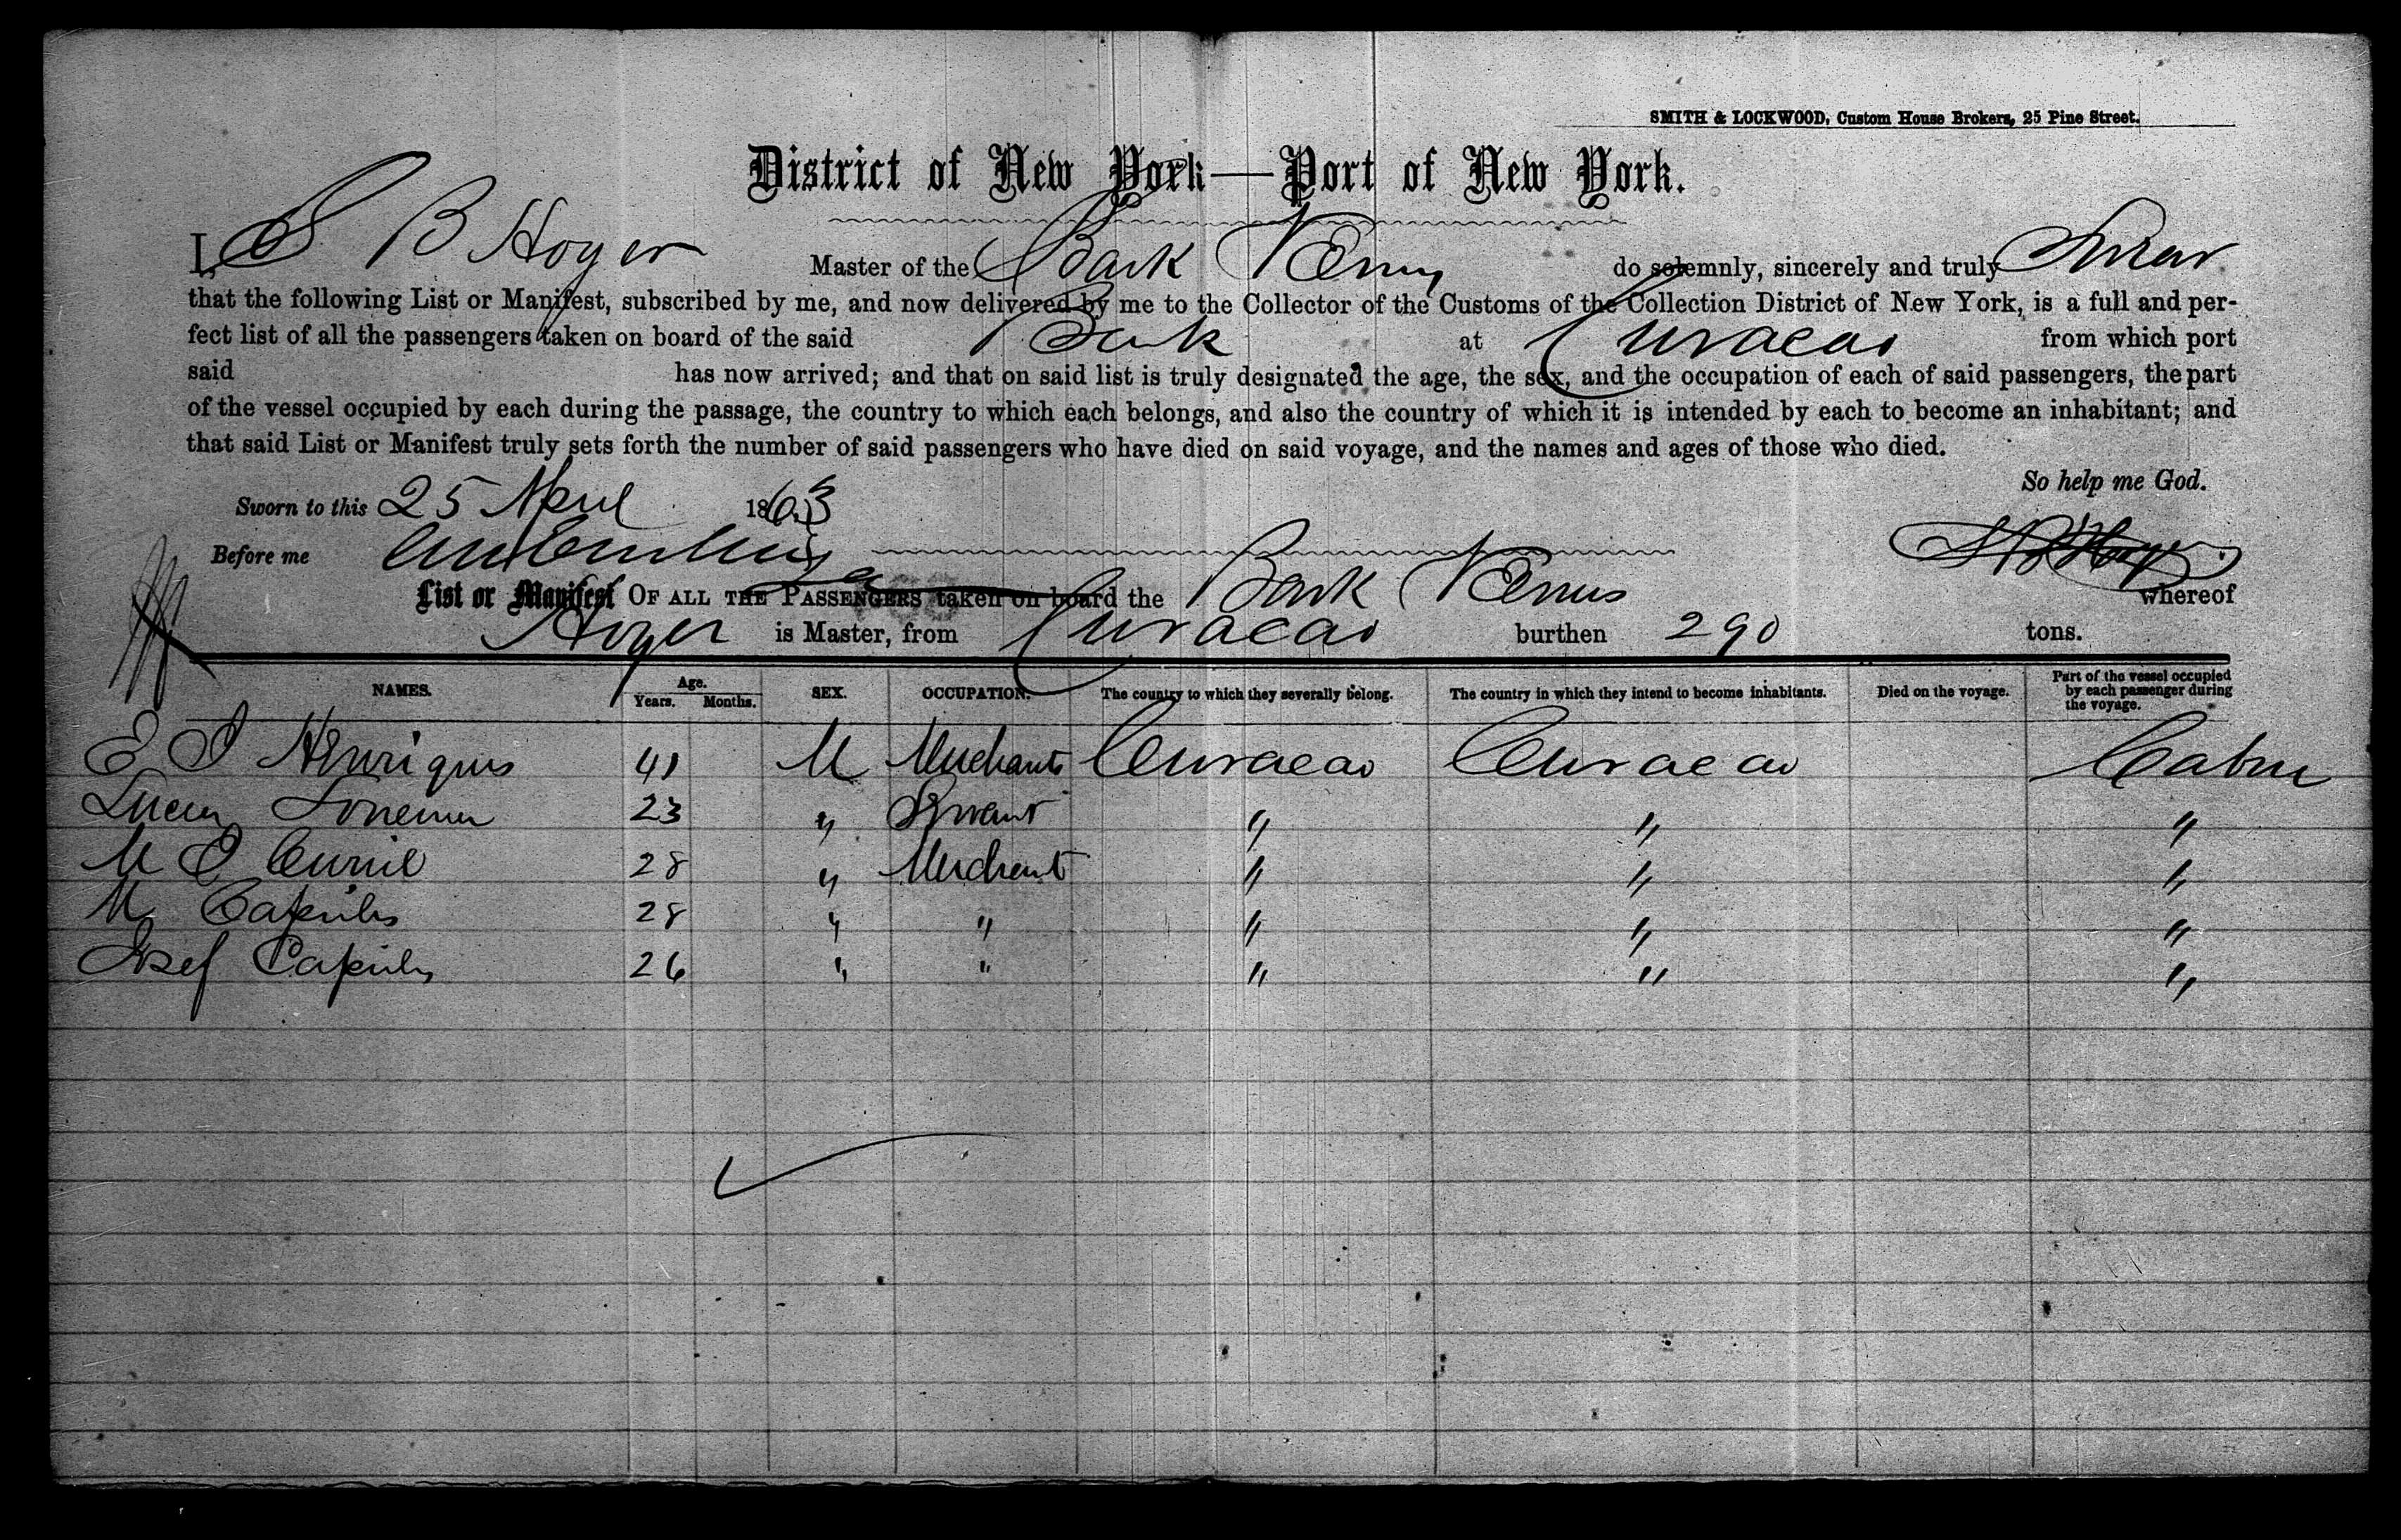 SMITH & LOCKWOOD, Custom House Brokers, 25 Pine Street.
District of New York—Port of New York.
I, S B Hoyer Master of the Bark Venus do solemnly, sincerely and truly Swear
that the following List or Manifest, subscribed by me, and now delivered by me to the Collector of the Customs of the Collection District of New York, is a full and per-
fect list of all the passengers taken on board of the said Bark at Curacao from which port
said has now arrived; and that on said list is truly designated the age, the sex, and the occupation of each of said passengers, the part
of the vessel occupied by each during the passage, the country to which each belongs, and also the country of which it is intended by each to become an inhabitant; and
that said List or Manifest truly sets forth the number of said passengers who have died on said voyage, and the names and ages of those who died.
So help me God.
Sworn to this 25 April 1863
Before me
List or Manifest OF ALL THE PASSENGERS taken on board the Bark Venus whereof
Hoyer is Master, from Curacao burthen 290 tons.
NAMES. Age. Years. Months. SEX. OCCUPATION. The country to which they severally belong. The country in which they intend to become inhabitants. Died on the voyage. Part of the vessel occupied by each passenger during the voyage.
E Henriques 41 M Merchant Curacao Curacao Cabin
23 " Servant " " "
M 28 " Merchant " " "
M Capriles 28 " " " " "
Josef Capriles 26 " " " " "